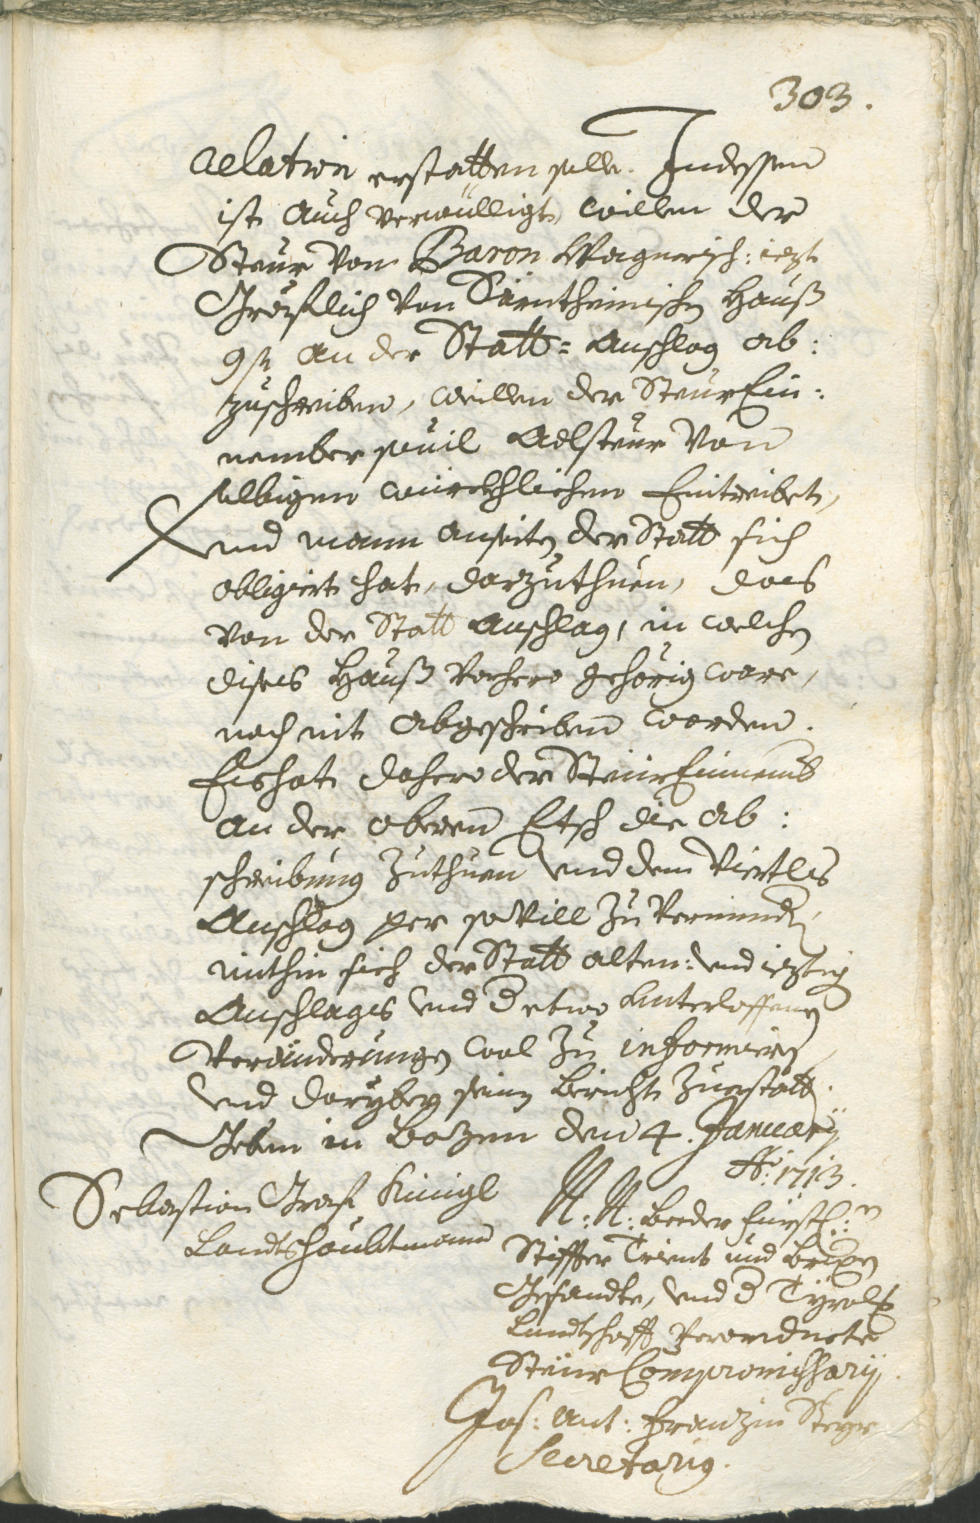 303.
Relation erstatten solle. Indessen
ist auch verwilligt, weillen der
Steur vom Baron Wagnerisch: iezt
Gräflich von Sarntheinischen Hauß
9 an der Statt= Anschlag ab:
zuschreiben, weillen der Steur Ein:
nember souil Adlsteur von
selbigem würckhlichen Eintreibet,
und mann anseiten der Statt sich
obligiert hat, darzuthuen, das
von der Statt Anschlag, in welchen
dises Hauß vorhero gehörig ware,
noch nit abgeschriben worden.
Es hat dahero der Steur Einnemb
an der obern Etsch die ab:
schreibung zuthuen und dem Viertls
Anschlag per so vill zu vermindern,
mithin sich der Statt alten: und iezig
Anschlages und etwo unterloffenen
Veränderungen wol zu informiern,
und daryber seinen Bericht zuerstatt.
Geben in Bozen den 4. January
Ao. 1713.
Sebastian Graf Künigl
Landtshaubtmann
N: N: Beeder Fürstl:n
Stiffter Trient und Brixen
Gesandte, und Tyrolis
Landtschafft Verordnete
Steur Compromissarij.
Jos: Ant: Franzin Steyr
Secretarius.